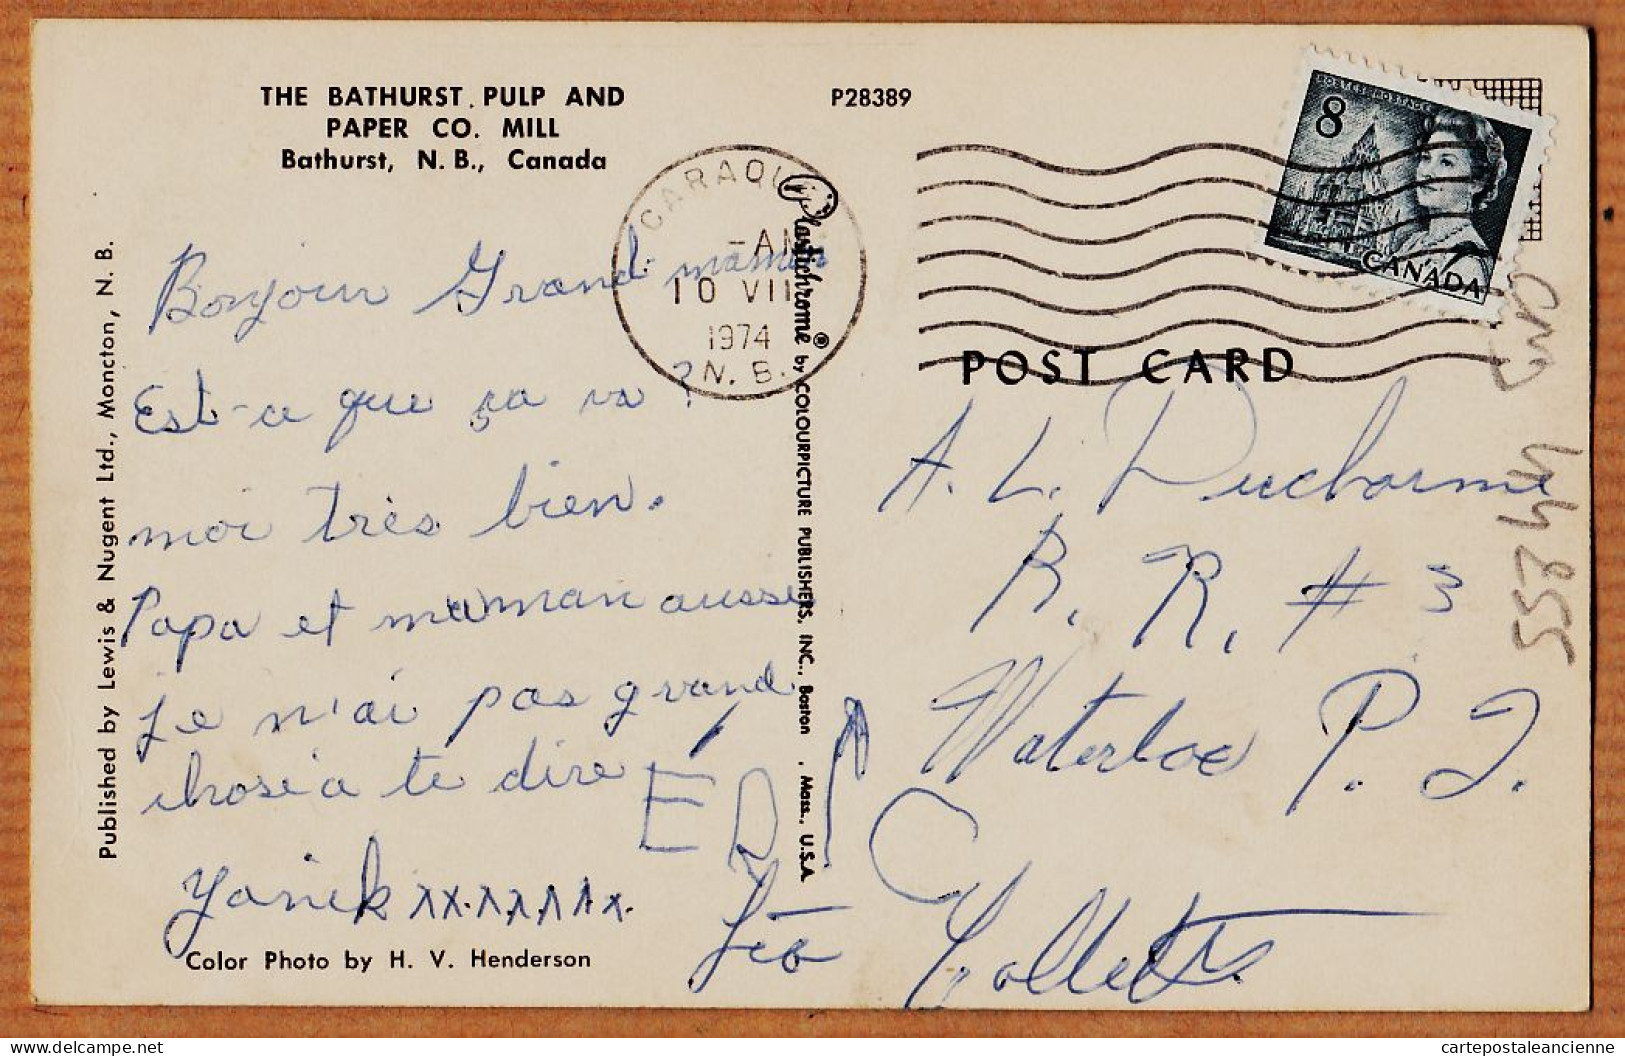 THE BATHURST PULP AND
PAPER CO. MILL
Bathurst, N. B., Canada
P28389
CARAQU
-AM
10 VII
1974
N. B.
POSTES POSTAGE
8
CANADA
POST CARD
Bonjour Grand maman
Est-ce que ça va ?
moi très bien.
Papa et maman aussi
je n'ai pas grand
chose a te dire
Yanick xx.xxxxx.
Color Photo by H. V. Henderson
Published by Lewis & Nugent Ltd., Moncton, N. B.
Plastichrome® by COLOURPICTURE PUBLISHERS, INC., Boston, Mass., U.S.A.
A. L. Ducharme
R. R. # 3
Waterloo P. Q.
Léo
Collette
55244
cartepostaleancienne